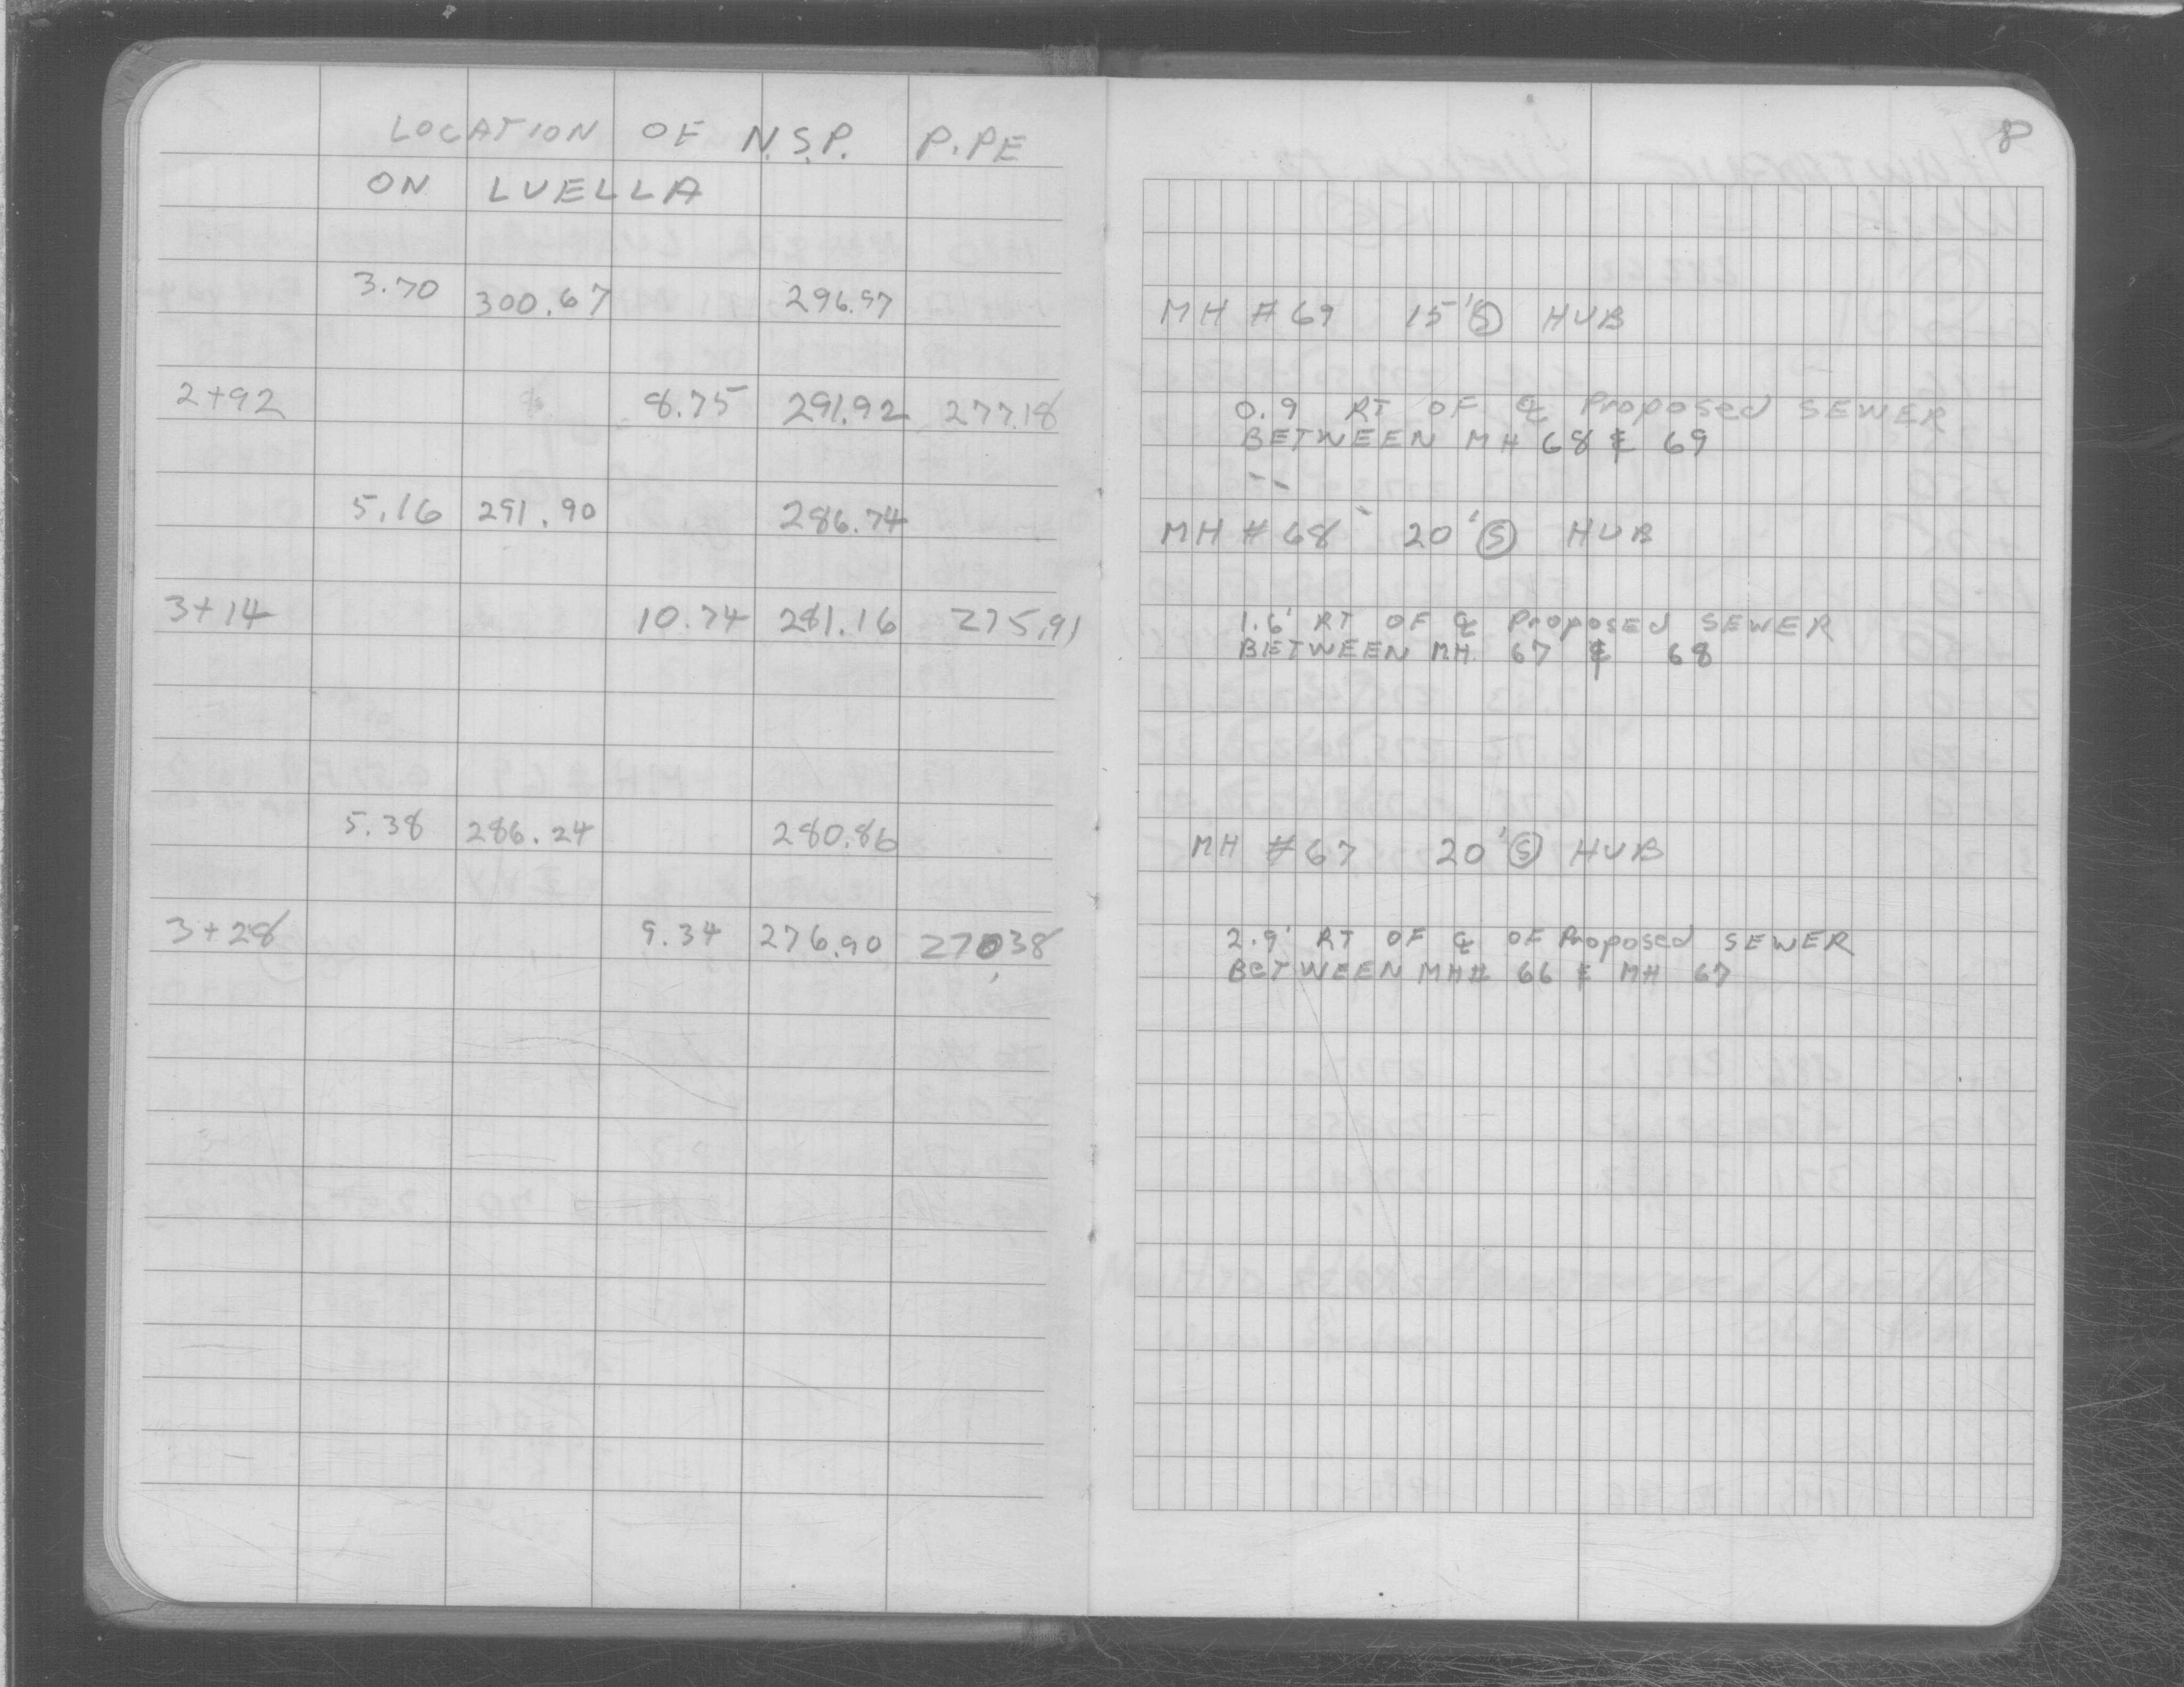 LOCATION OF N.S.P. P.PE
ON LUELLA
3.70 300.67 296.97
2+92 8.75 291.92 277.18
5.16 291.90 286.74
3+14 10.74 281.16 275.91
5.38 286.24 280.86
3+28 9.34 276.90 270.38
8
MH #69 15' Ⓢ HUB
0.9 RT OF ℄ Proposed SEWER
BETWEEN MH 68 & 69
MH #68 20' Ⓢ HUB
1.6' RT OF ℄ Proposed SEWER
BETWEEN MH 67 & 68
MH #67 20' Ⓢ HUB
2.9' RT OF ℄ OF Proposed SEWER
BETWEEN MH# 66 & MH 67